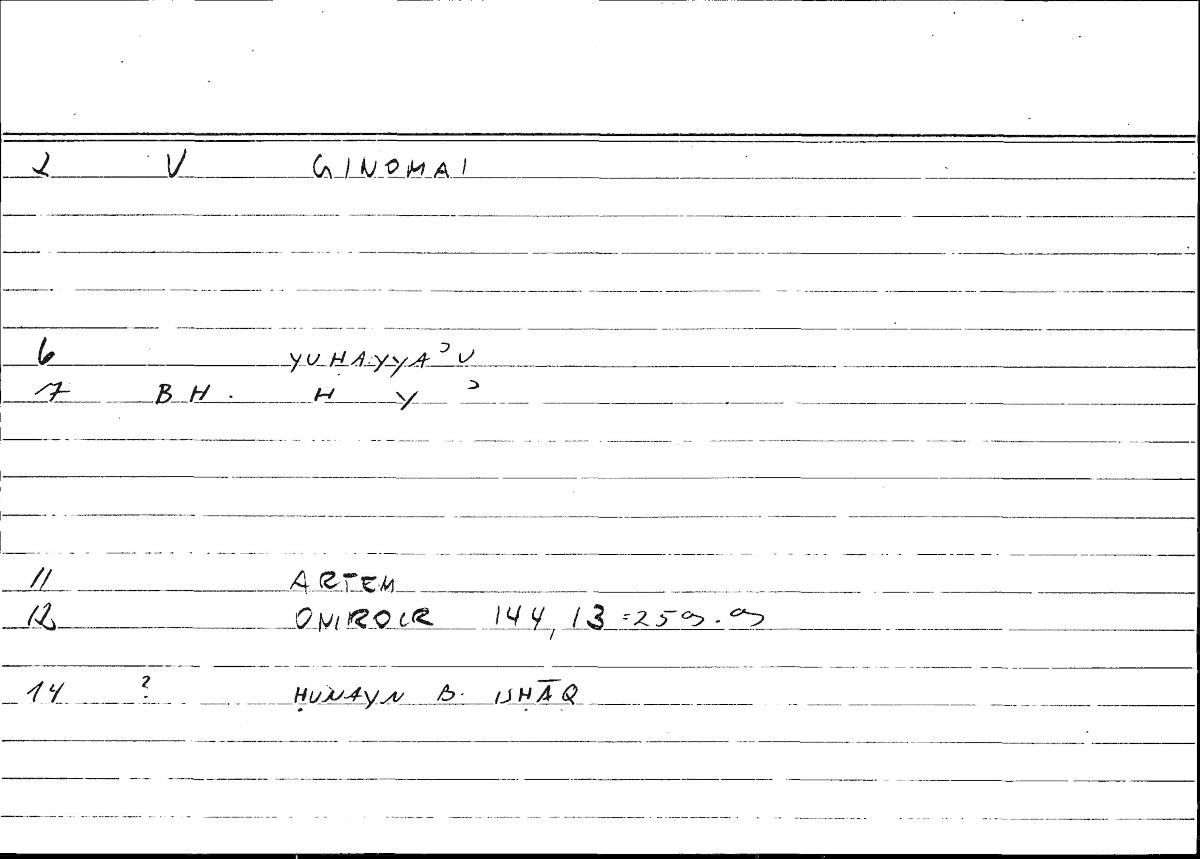 2 V GINOMAI
6 YUHAYYAʾU
7 BH. H Y ʾ
11 ARTEM
12 ONIROCR 144,13 = 259.9
14 ? ḤUNAYN B. ISḤĀQ